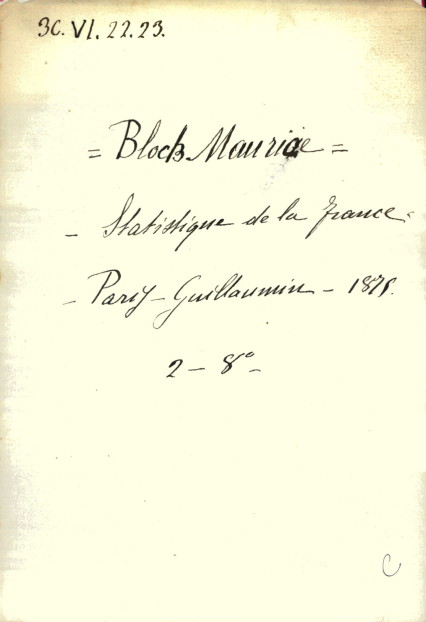 3C. VI. 22.23.
= Block Maurice =
- Statistique de la france.
- Paris - Guillaumin - 1875.
2 - 8° -
C